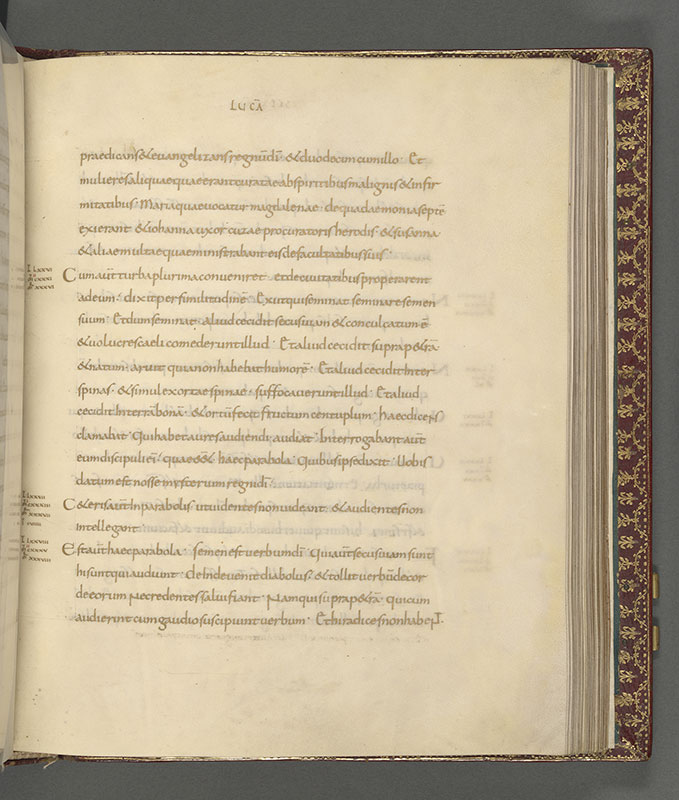 LUCĀ
praedicans & evangelizans regnū dī · & duodecim cum illo · Et
mulieres aliquae quae erant curatae ab spiritibus malignis & infir
mitatibus · Maria quae vocatur magdalenae · de qua daemonia septē
exierant & iohanna uxor cuzae procuratoris herodis · & susanna
& aliae multae quae ministrabant eis de facultatibus suis ·
Cum aūt turba plurima conveniret et de civitatibus properarent
ad eum · dixit per similitudinē · Exiit qui seminat seminare semen
suum · Et dum seminat · aliud cecidit secus viam & conculcatum ē
& volucres caeli comederunt illud · Et aliud cecidit supra p&rā
& natum · aruit quia non habebat humorē · Et aliud cecidit inter
spinas · & simul exortae spinae · suffocaverunt illud · Et aliud
cecidit in terrā bonā · & ortū fecit fructum centuplum · haec dicens
clamabat · Qui habet aures audiendi audiat · Interrogabant aūt
eum discipuli ei · quae ess& haec parabola · Quibus ipse dixit · Vobis
datum est nosse mysterium regni dī
Ceteris aūt in parabolis · ut videntes non videant · & audientes non
intellegant ·
Est aūt haec parabola · semen est verbum dī · Qui aūt secus viam sunt
hi sunt qui audiunt · deinde venit diabolus · & tollit verbū de cor
de eorum · Ne credentes salvi fiant · Nam qui supra p&rā · qui cum
audierint cum gaudio suscipiunt verbum · Et hi radices non habent